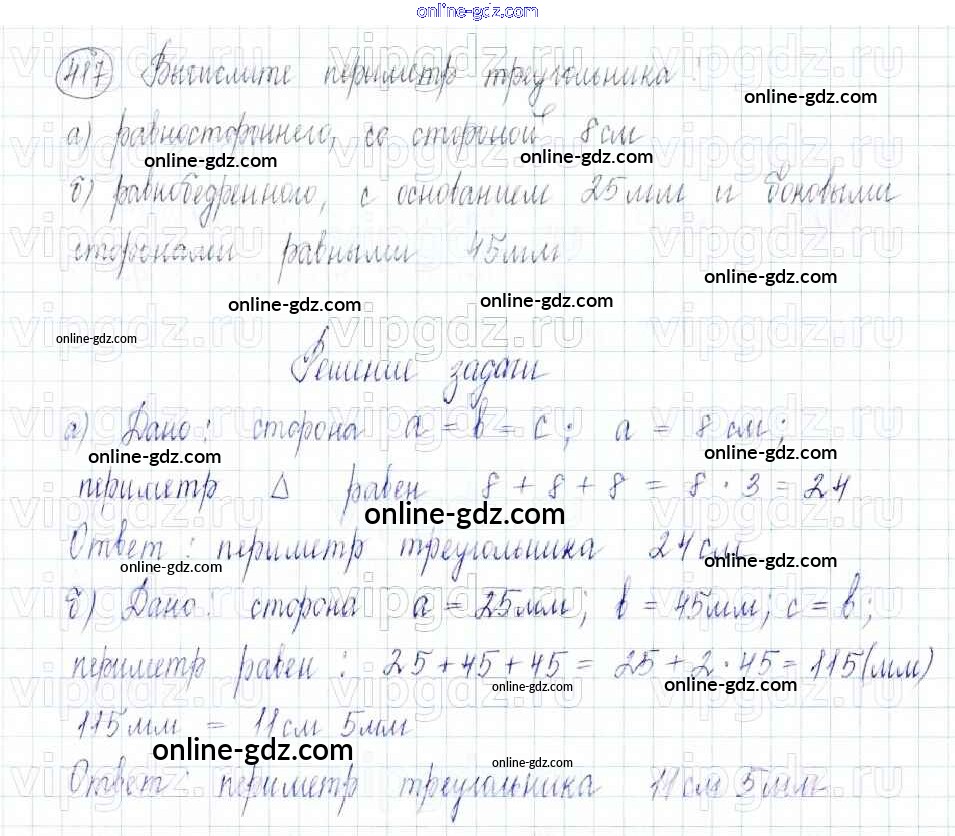 online-gdz.com
417 Вычислите периметр треугольника
online-gdz.com
а) равностороннего, со стороной 8 см
online-gdz.com online-gdz.com
б) равнобедренного, с основанием 25мм и боковыми
vipgdz.ru vipgdz.ru vipgdz.ru
сторонами равными 45мм
online-gdz.com
online-gdz.com online-gdz.com
vipgdz.ru vipgdz.ru vipgdz.ru
online-gdz.com
Решение задачи
vipgdz.ru vipgdz.ru vipgdz.ru
а) Дано: сторона a = b = c; a = 8 см;
online-gdz.com online-gdz.com
периметр Δ равен 8 + 8 + 8 = 8 · 3 = 24
online-gdz.com
Ответ: периметр треугольника 24см
online-gdz.com online-gdz.com
б) Дано: сторона a = 25мм; b = 45мм; c = b;
периметр равен: 25 + 45 + 45 = 25 + 2 · 45 = 115(мм)
online-gdz.com online-gdz.com
115мм = 11см 5мм
online-gdz.com online-gdz.com
Ответ: периметр треугольника 11см 5мм